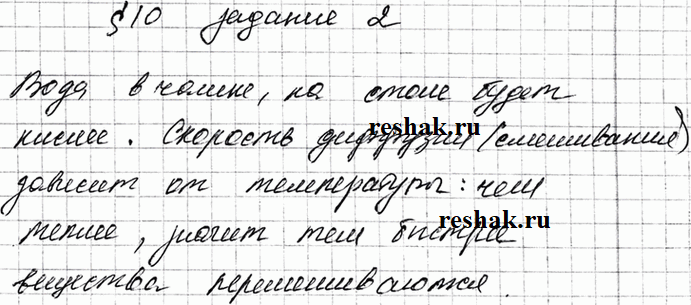 §10 задание 2
Вода в чашке, на столе будет
кислее. Скорость диффузии (смешивание)
reshak.ru
зависит от температуры: чем
reshak.ru
теплее, значит тем быстрее
вещества перемешиваются.